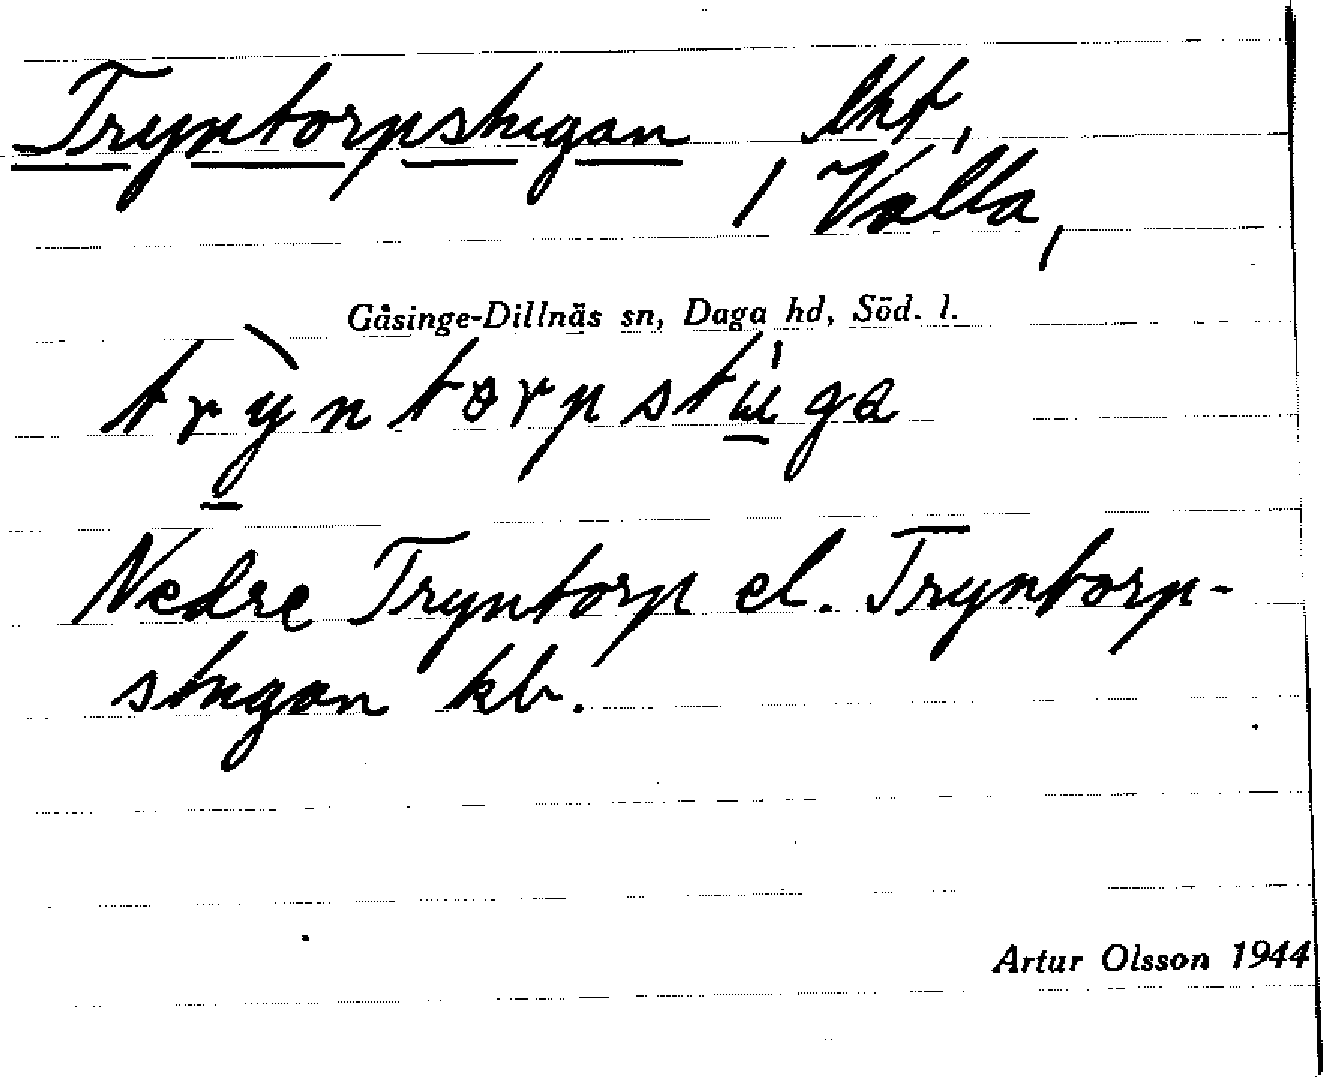 Tryntorpstugan lht,
/ Valla,
Gåsinge-Dillnäs sn, Daga hd, Söd. l.
trỳntorpstúga
Nedre Tryntorp el. Tryntorp-
stugan kb.
Artur Olsson 1944